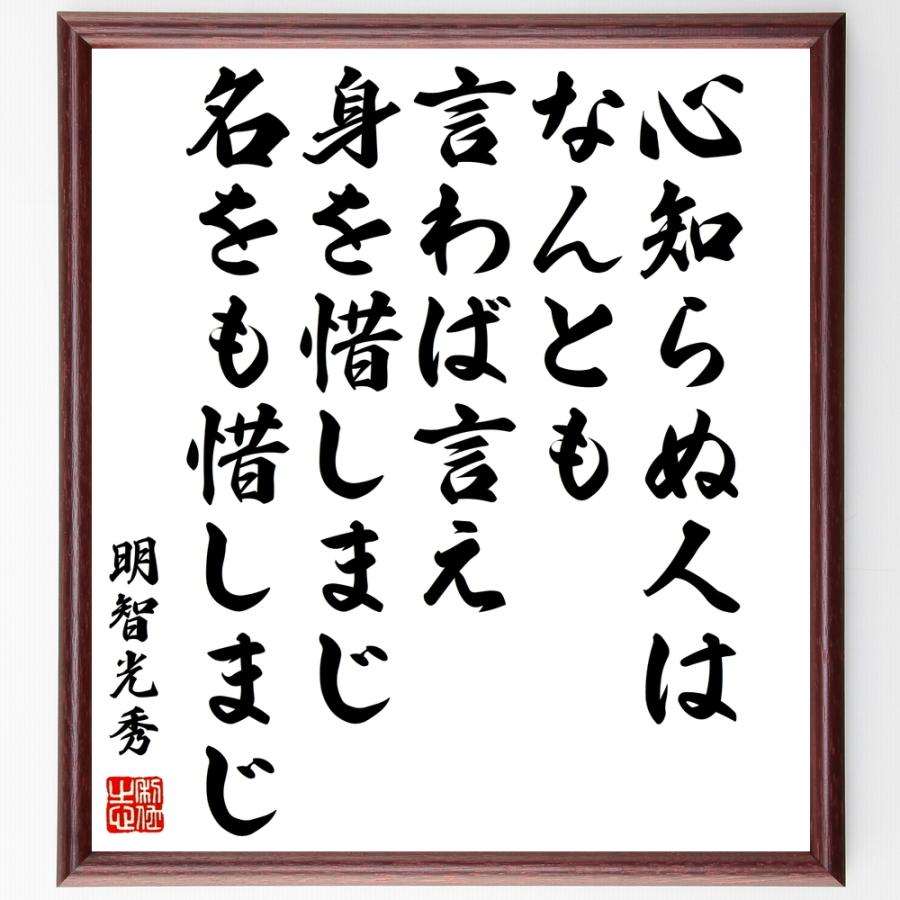 心知らぬ人は
なんとも
言わば言え
身を惜しまじ
名をも惜しまじ
明智光秀